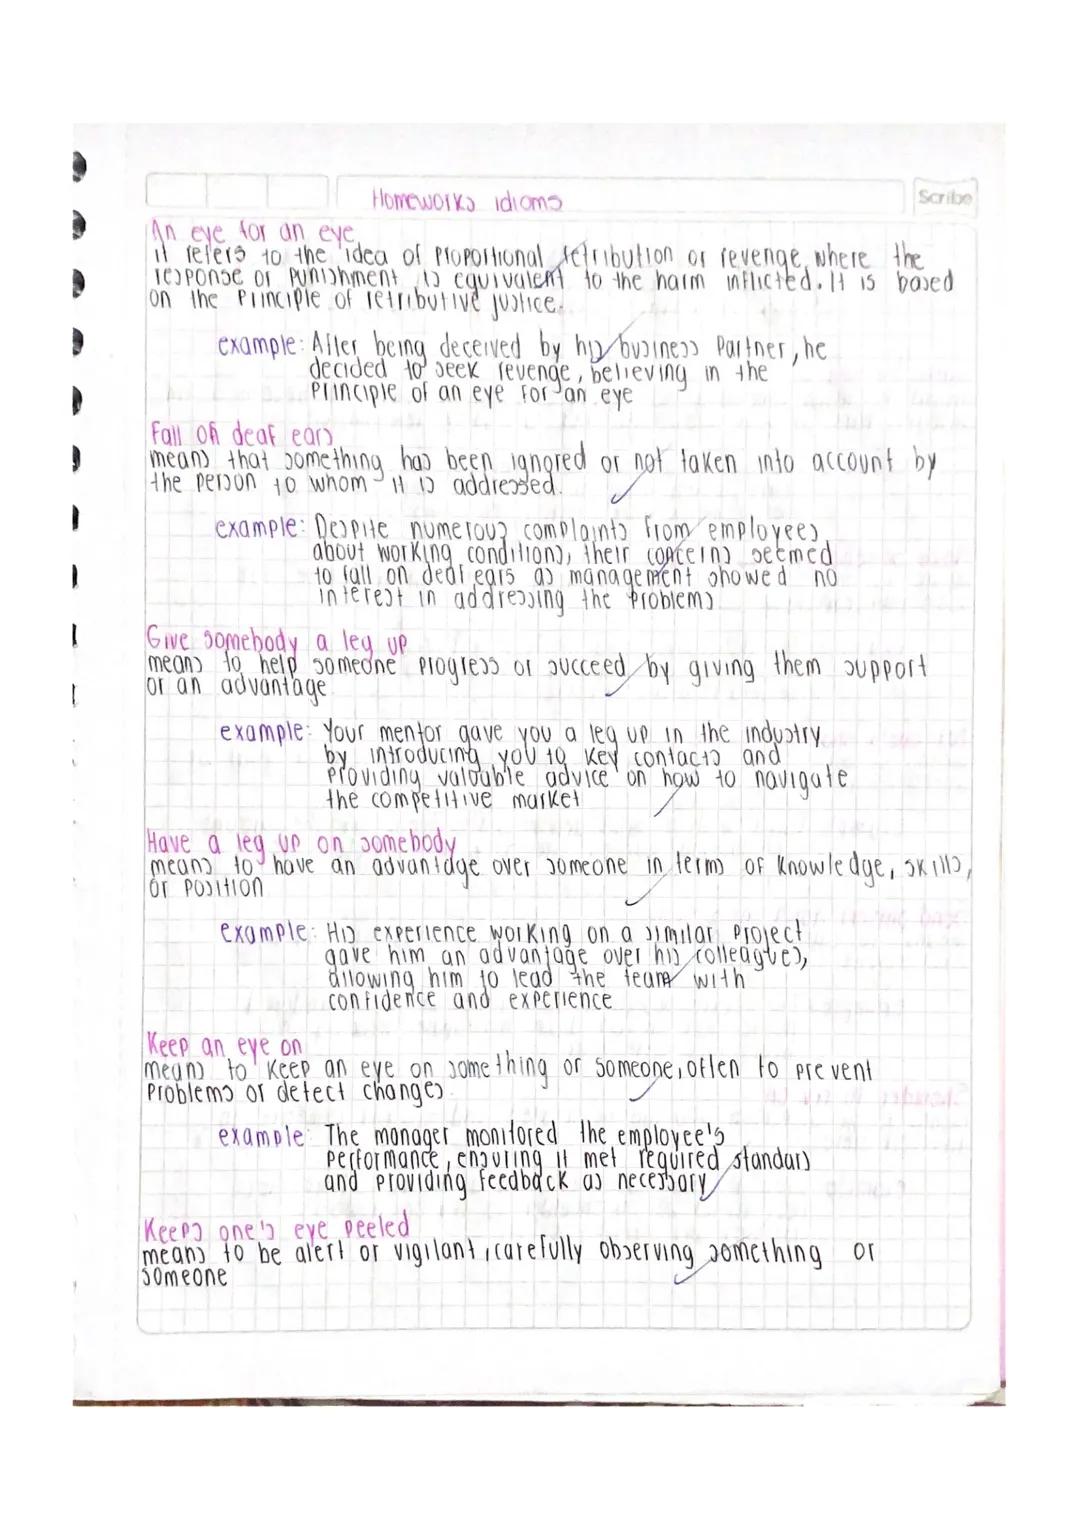 Homeworks idioms
Scribe
An eye for an eye
it refers to the idea of proportional retribution or revenge, where the
response or punishment is equivalent to the harm inflicted. It is based
on the principle of retributive justice.
example: After being deceived by his business Partner, he
decided to seek revenge, believing in the
Principle of an eye for an eye
Fall on deaf ears
means that something has been ignored or not taken into account by
the person to whom it is addressed.
example: Despite numerous complaints from employees
about working conditions, their concerns seemed
to fall on deaf ears as management showed no
interest in addressing the problems
Give somebody a leg up
means to help someone progress or succeed by giving them support
or an advantage
example: Your mentor gave you a leg up in the industry
by introducing you to key contacts and
Providing valuable advice on how to navigate
the competitive market
Have a leg up on somebody
means to have an advantage over someone in terms of knowledge, skills,
or position
example: His experience working on a similar project
gave him an advantage over his colleagues,
allowing him to lead the team with
confidence and experience
Keep an eye on
means to keep an eye on something or someone, often to prevent
Problems or detect changes
example: The manager monitored the employee's
Performance, ensuring it met required standars
and providing feedback as necessary
Keeps one's eye peeled
means to be alert or vigilant, carefully observing something or
someone